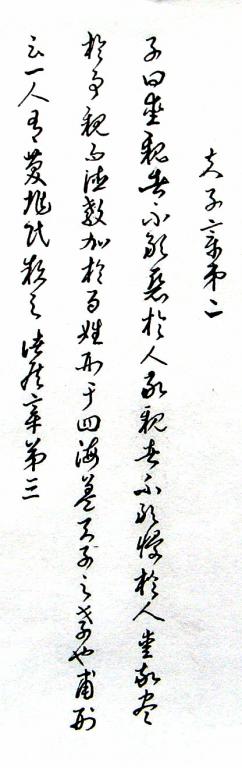 天子章第二
子曰愛親者不敢惡於人敬親者不敢慢於人愛敬盡
於事親而德教加於百姓刑于四海蓋天子之孝也甫刑
云一人有慶兆民賴之諸侯章第三